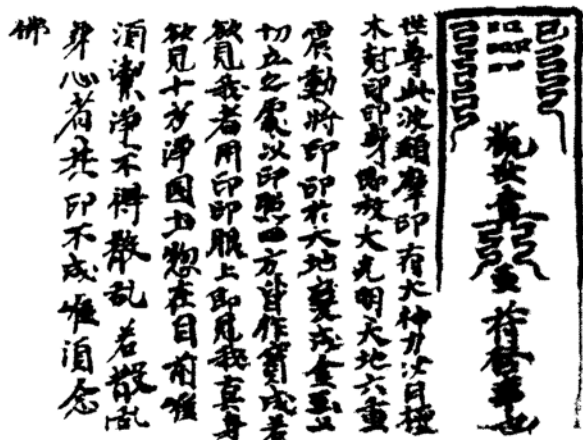 觀世音 符印
世尊此波頭摩印有大神力以白檀
木刻印印身即放大光明天地六重
震動將印印於大地變成金玉上
切立之處以印照四方皆作寶成若
欲見我者用印印眼上即見我真身
欲見十方淨國土惣在目前唯
須潔淨不得散乱若散乱
身心者其印不成唯須念
佛